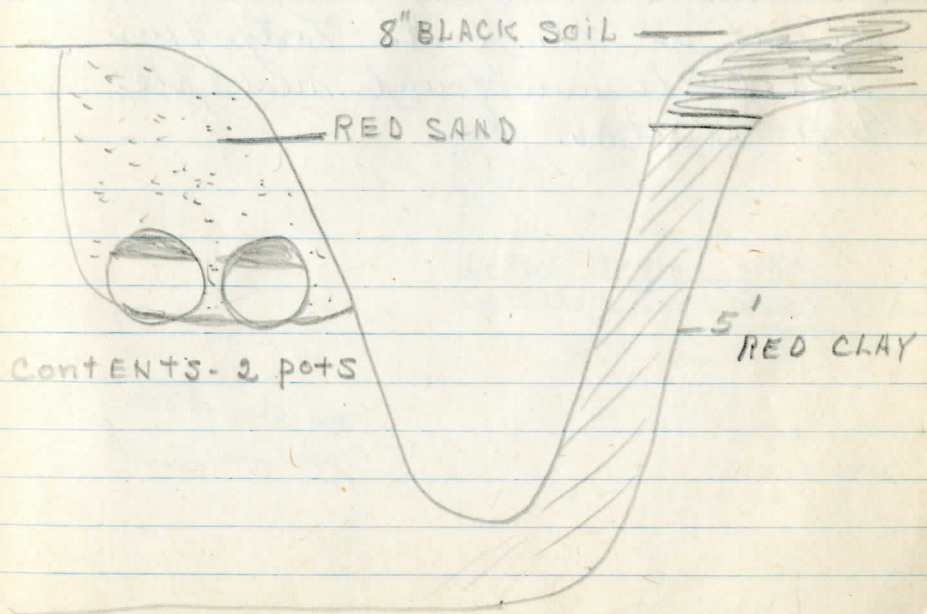 8" BLACK SOIL
RED SAND
5'
RED CLAY
CONtENtS- 2 pots